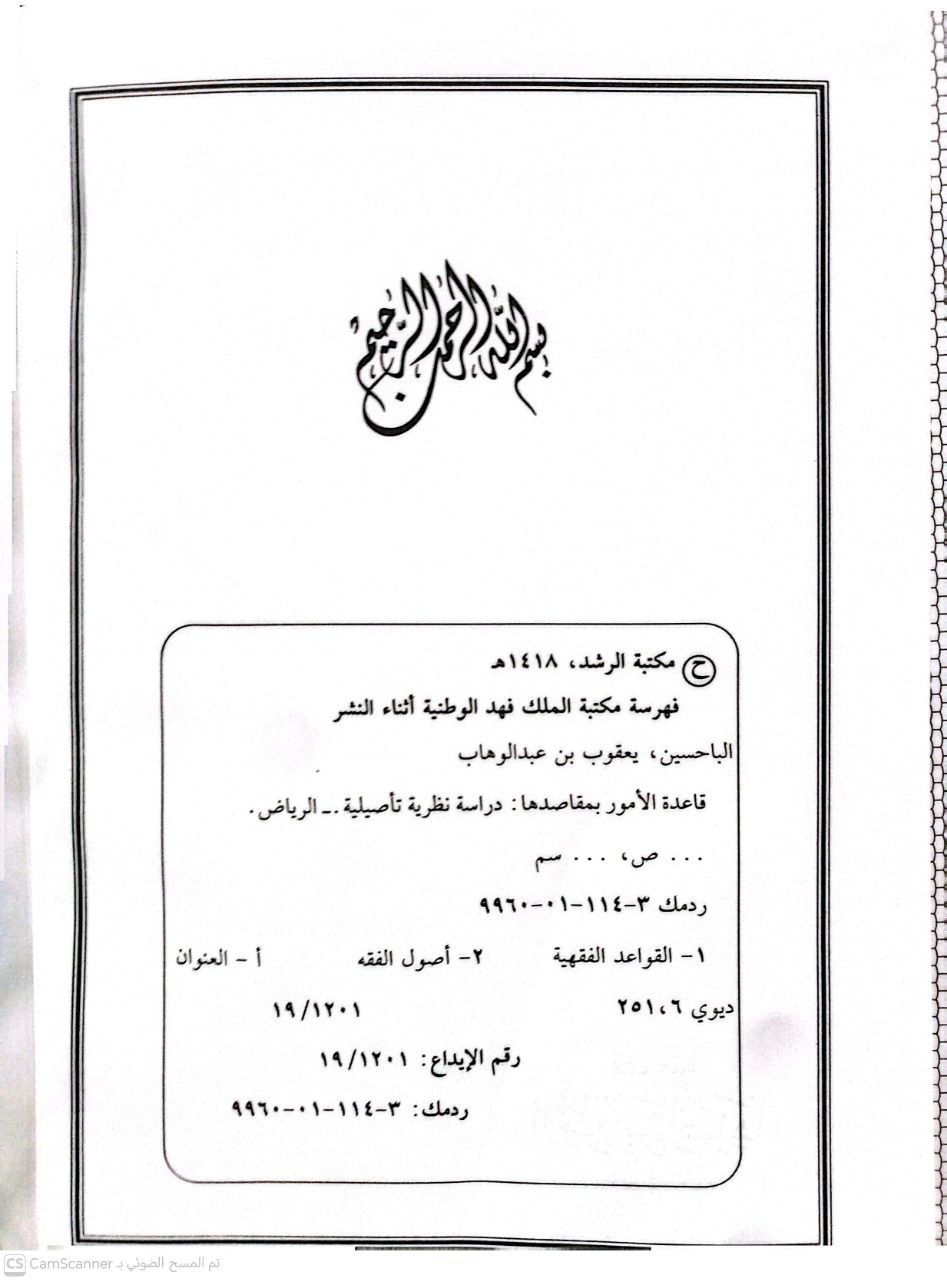 بسم الله الرحمن الرحيم
ح مكتبة الرشد، ١٤١٨هـ
فهرسة مكتبة الملك فهد الوطنية أثناء النشر
الباحسين، يعقوب بن عبدالوهاب
قاعدة الأمور بمقاصدها: دراسة نظرية تأصيلية .ـ الرياض.
... ص، ... سم
ردمك ٣-١١٤-٠١-٩٩٦٠
١- القواعد الفقهية ٢- أصول الفقه أ - العنوان
ديوي ٢٥١،٦ ١٩/١٢٠١
رقم الإيداع: ١٩/١٢٠١
ردمك: ٣-١١٤-٠١-٩٩٦٠
CS CamScanner تم المسح الضوئي بـ